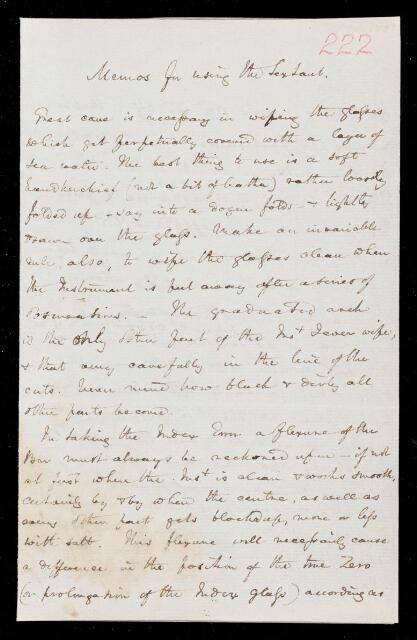 222
Memos for using the Sextant.
Great care is necessary in wiping the glasses
which get perpetually covered with a layer of
sea water. The best thing to use is a soft
handkerchief (not a bit of leather) rather loosely
folded up - say into a dozen folds - & lightly
drawn over the glass. Make an invariable
rule, also, to wipe the glasses clean when
the Instrument is put away after a series of
observations. - The graduated arch
is the only other part of the Inst I ever wipe,
& that very carefully in the line of the
cuts. Never mind how black & dirty all
other parts become.
In taking the Index Error a flexure of the
Bar must always be reckoned upon - if not
at first when the Inst is clean & works smooth,
certainly by & by when the centre, as well as
every other part gets blocked up, more or less
with salt. This flexure will necessarily cause
a difference in the position of the true Zero
(or prolongation of the Index glass) according as